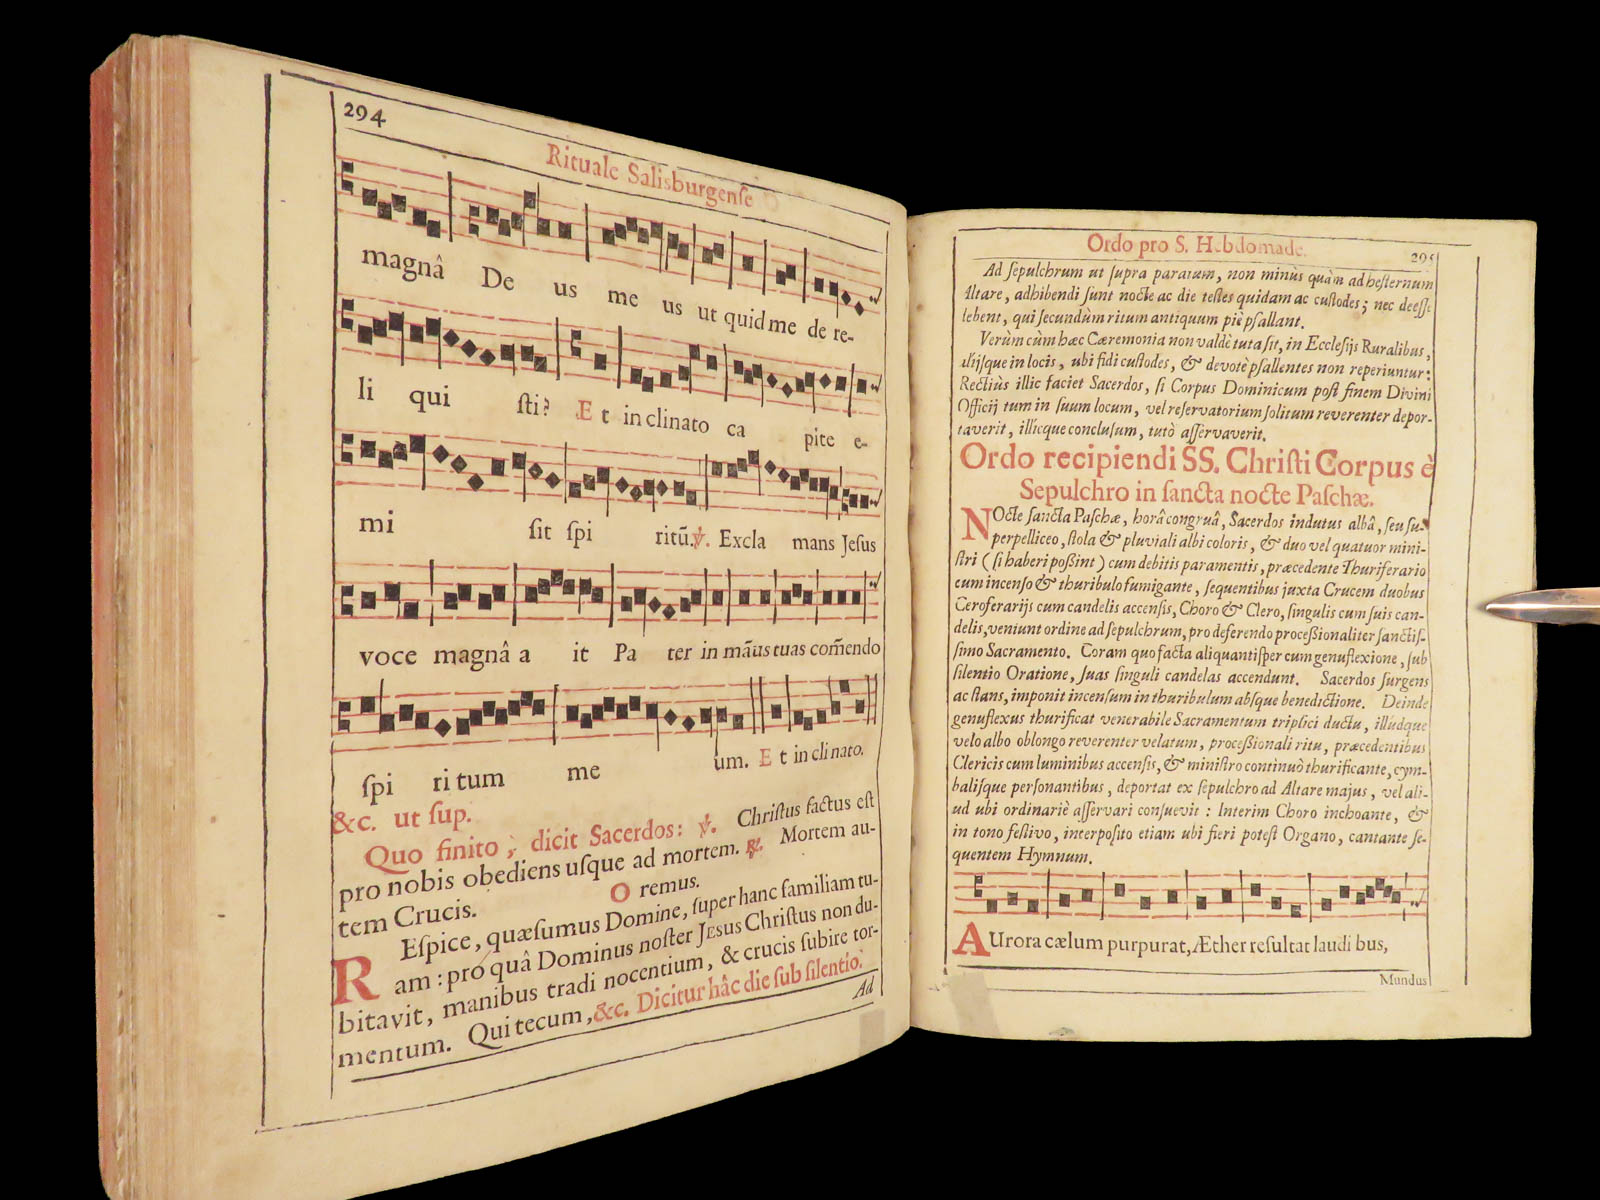 294
Rituale Salisburgenſe
magnâ De us me us ut quid me de re-
li qui ſti? Et in clinato ca pite e-
mi ſit ſpi ritū. ℣. Excla mans Jeſus
voce magnâ a it Pa ter in māus tuas com̄endo
ſpi ri tum me um. Et in cli nato.
&c. ut ſup.
Quo finito, dicit Sacerdos: ℣. Chriſtus factus eſt
pro nobis obediens uſque ad mortem. ℟. Mortem au-
tem Crucis.
Oremus.
REſpice, quæſumus Domine, ſuper hanc familiam tu-
am: pro quâ Dominus noſter Jesus Chriſtus non du-
bitavit, manibus tradi nocentium, & crucis ſubire tor-
mentum. Qui tecum, &c. Dicitur hâc die ſub ſilentio.
Ad
Ordo pro S. Hebdomade.
295
Ad ſepulchrum ut ſupra paratum, non minus quàm ad heſternum
Altare, adhibendi ſunt nocte ac die teſtes quidam ac cuſtodes; nec deeſſe
debent, qui ſecundùm ritum antiquum piè pſallant.
Verùm cùm hæc Cæremonia non valdè tuta ſit, in Eccleſijs Ruralibus,
alijſque in locis, ubi fidi cuſtodes, & devotè pſallentes non reperiuntur:
Rectiùs illic faciet Sacerdos, ſi Corpus Dominicum poſt finem Divini
Officij tum in ſuum locum, vel reſervatorium ſolitum reverenter depor-
taverit, illicque concluſum, tutò aſſervaverit.
Ordo recipiendi SS. Chriſti Corpus è
Sepulchro in ſancta nocte Paſchæ.
NOcte ſancta Paſchæ, horâ congruâ, Sacerdos indutus albâ, ſeu ſu-
perpelliceo, ſtola & pluviali albi coloris, & duo vel quatuor mini-
ſtri (ſi haberi poſſint) cum debitis paramentis, præcedente Thuriferario
cum incenſo & thuribulo fumigante, ſequentibus juxta Crucem duobus
Ceroferarijs cum candelis accenſis, Choro & Clero, ſingulis cum ſuis can-
delis, veniunt ordine ad ſepulchrum, pro deferendo proceſſionaliter ſanctiſ-
ſimo Sacramento. Coram quo facta aliquantiſper cum genuflexione, ſub
ſilentio Oratione, ſuas ſinguli candelas accendunt. Sacerdos ſurgens
ac ſtans, imponit incenſum in thuribulum abſque benedictione. Deinde
genuflexus thurificat venerabile Sacramentum triplici ductu, illúdque
velo albo oblongo reverenter velatum, proceſſionali ritu, præcedentibus
Clericis cum luminibus accenſis, & miniſtro continuò thurificante, cym-
baliſque perſonantibus, deportat ex ſepulchro ad Altare majus, vel ali-
ud ubi ordinariè aſſervari conſuevit: Interim Choro inchoante, &
in tono feſtivo, interpoſito etiam ubi fieri poteſt Organo, cantante ſe-
quentem Hymnum.
AUrora cælum purpurat, Æther reſultat laudi bus,
Mundus